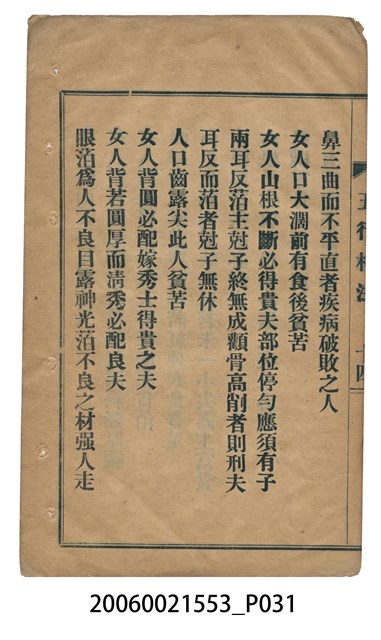 五行相法 十四
鼻三曲而不平直者疾病破敗之人
女人口大濶前有食後貧苦
女人山根不斷必得貴夫部位停勻應須有子
兩耳反箔主尅子終無成顴骨高削者則刑夫
耳反而箔者尅子無休
人口齒露尖此人貧苦
女人背圓必配嫁秀士得貴之夫
女人背若圓厚而清秀必配良夫
眼箔為人不良目露神光箔不良之材强人走
20060021553_P031